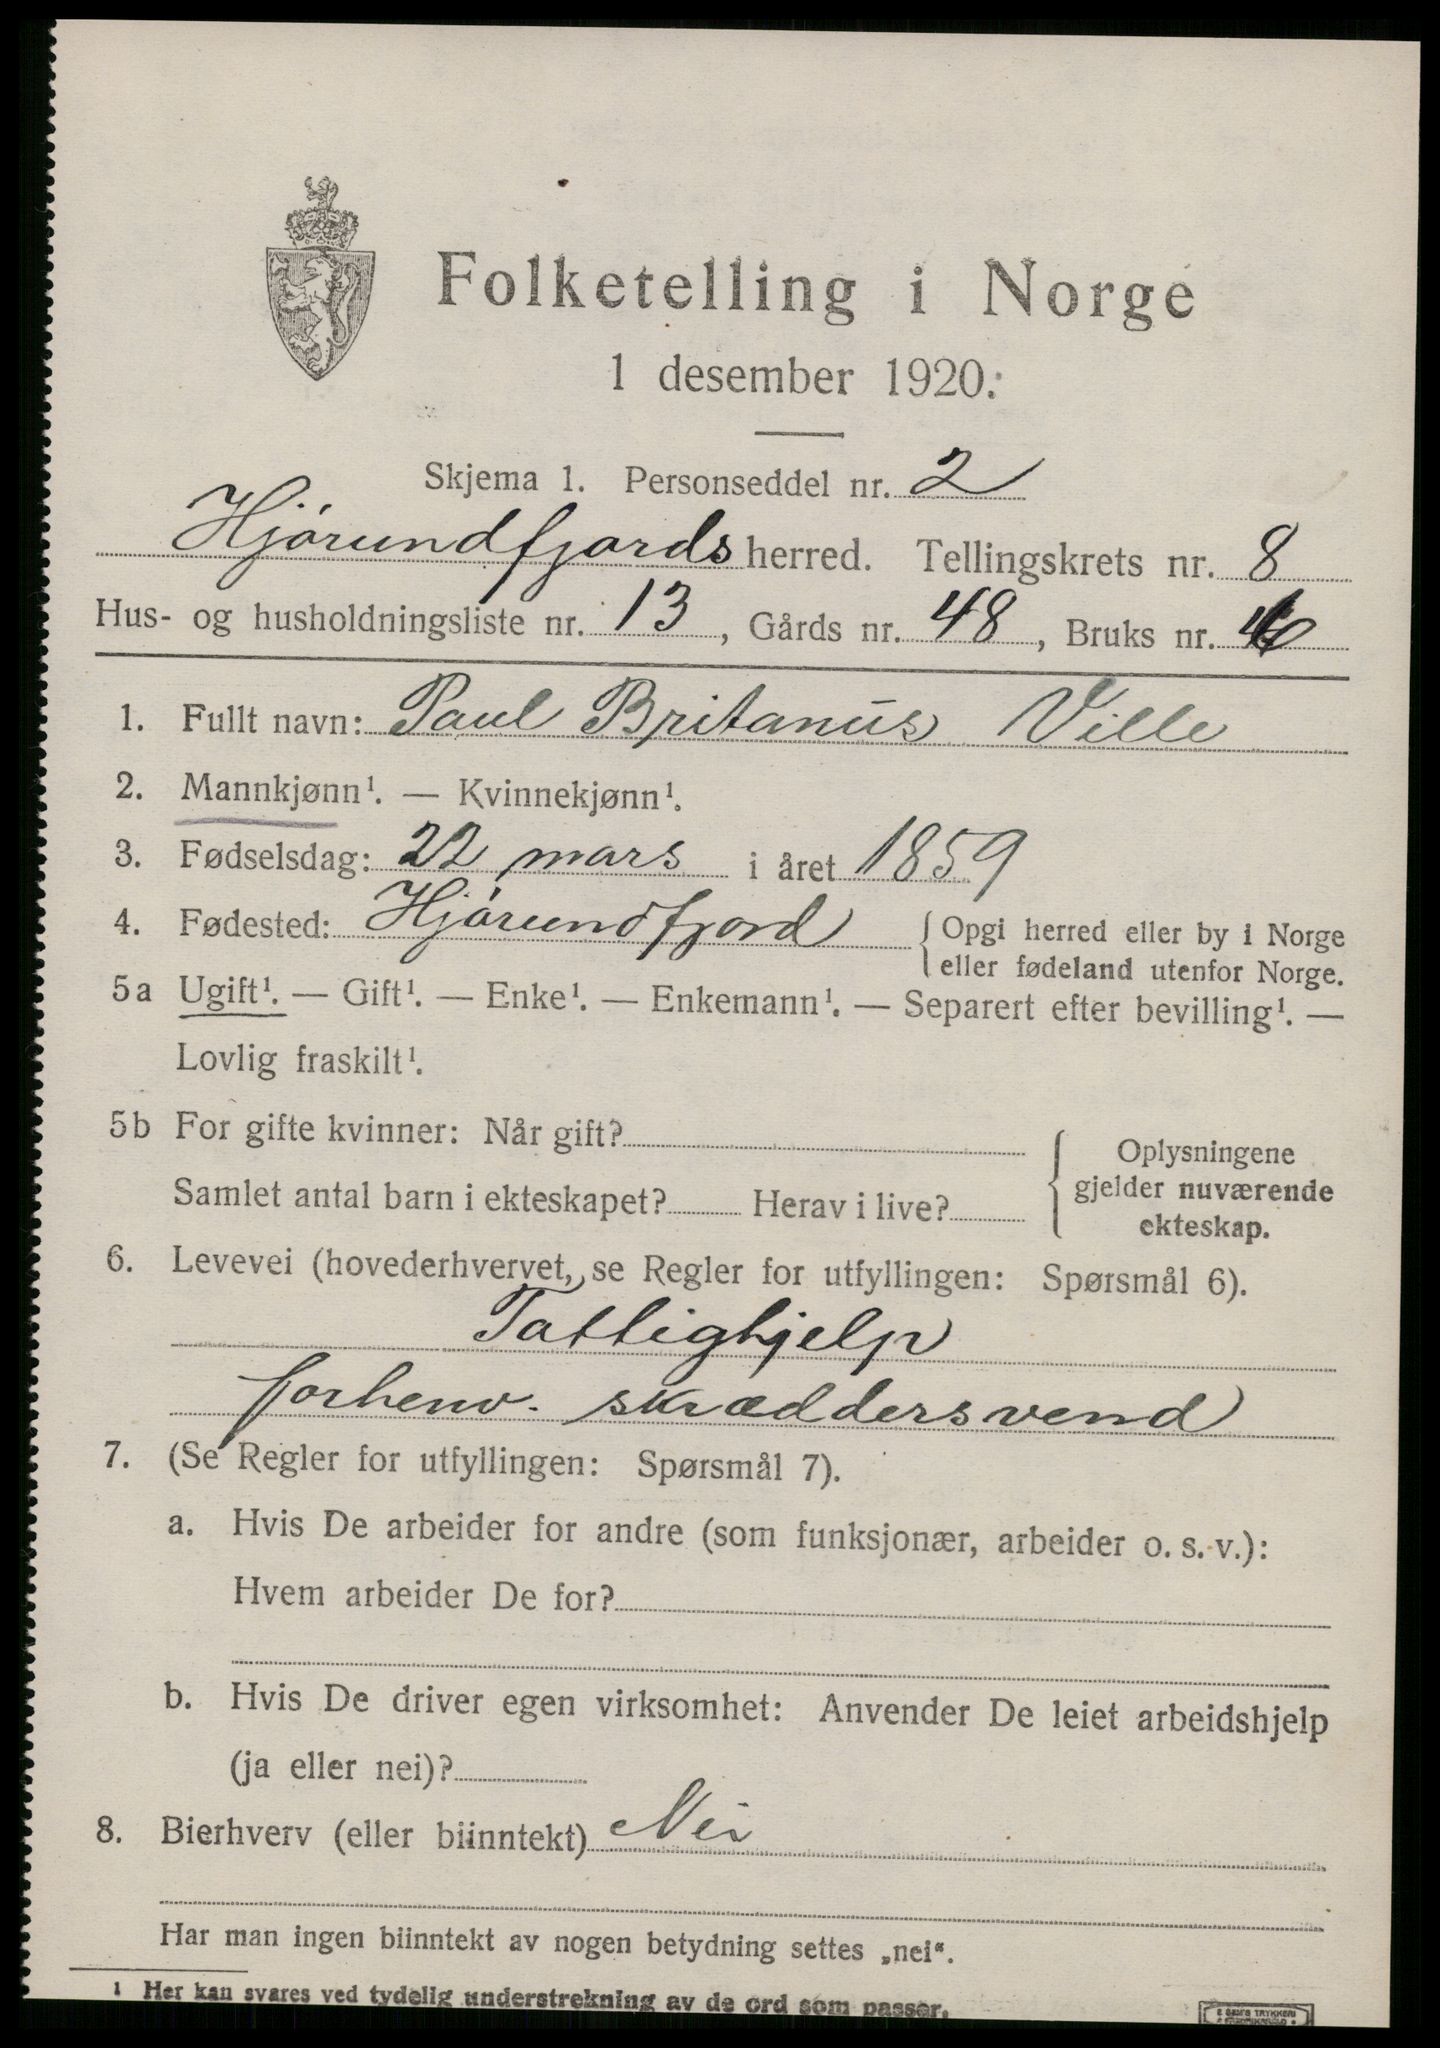 Folketelling i Norge
1 desember 1920.
Skjema 1. Personseddel nr. 2
Hjörundfjords herred. Tellingskrets nr. 8
Hus- og husholdningsliste nr. 13, Gårds nr. 48, Bruks nr.
1. Fullt navn: Paul Britanus Ville
2. Mannkjønn¹. — Kvinnekjønn¹.
3. Fødselsdag: 22 mars i året 1859
4. Fødested: Hjörundfjord { Opgi herred eller by i Norge
eller fødeland utenfor Norge.
5a Ugift¹. — Gift¹. — Enke¹. — Enkemann¹. — Separert efter bevilling¹. —
Lovlig fraskilt¹.
5b For gifte kvinner: Når gift?
Samlet antal barn i ekteskapet? Herav i live?
{ Oplysningene
gjelder nuværende
ekteskap.
6. Levevei (hovederhvervet, se Regler for utfyllingen: Spørsmål 6).
Fattighjelp
forhenv. skræddersvend
7. (Se Regler for utfyllingen: Spørsmål 7).
a. Hvis De arbeider for andre (som funksjonær, arbeider o. s. v.):
Hvem arbeider De for?
b. Hvis De driver egen virksomhet: Anvender De leiet arbeidshjelp
(ja eller nei)?
8. Bierhverv (eller biinntekt) Nei
Har man ingen biinntekt av nogen betydning settes „nei“.
¹ Her kan svares ved tydelig understrekning av de ord som passer.